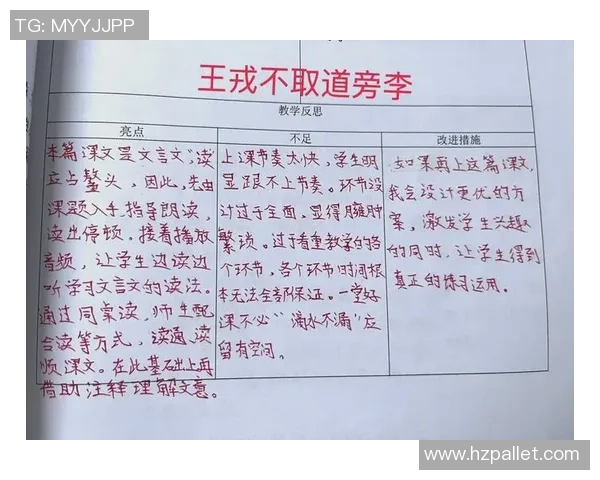 TG: MYYJJPP
王戎不取道旁李
教学反思
亮点
本篇课文是文言文,"读"
应占鳌头,因此,先由
课题入手,指导朗读,
读出停顿。接着播放
音频,让学生边读边
听学习文言文的读法。
通过同桌读,师生配
合读等方式,读通、读
顺课文。在此基础上再
借助注释理解文意。
不足
上课节奏太快,学生明
显跟不上节奏。环节设
计过于全面,显得臃肿
繁琐。过于看重教学的各
个环节,各个环节时间根
本无法全部保证。一堂好
课不必"滴水不漏"应
留有空间。
改进措施
如果再上这篇课文,
我会设计更优的方
案,激发学生兴趣
的同时,让学生得到
真正的练习运用。
www.hzpallet.com